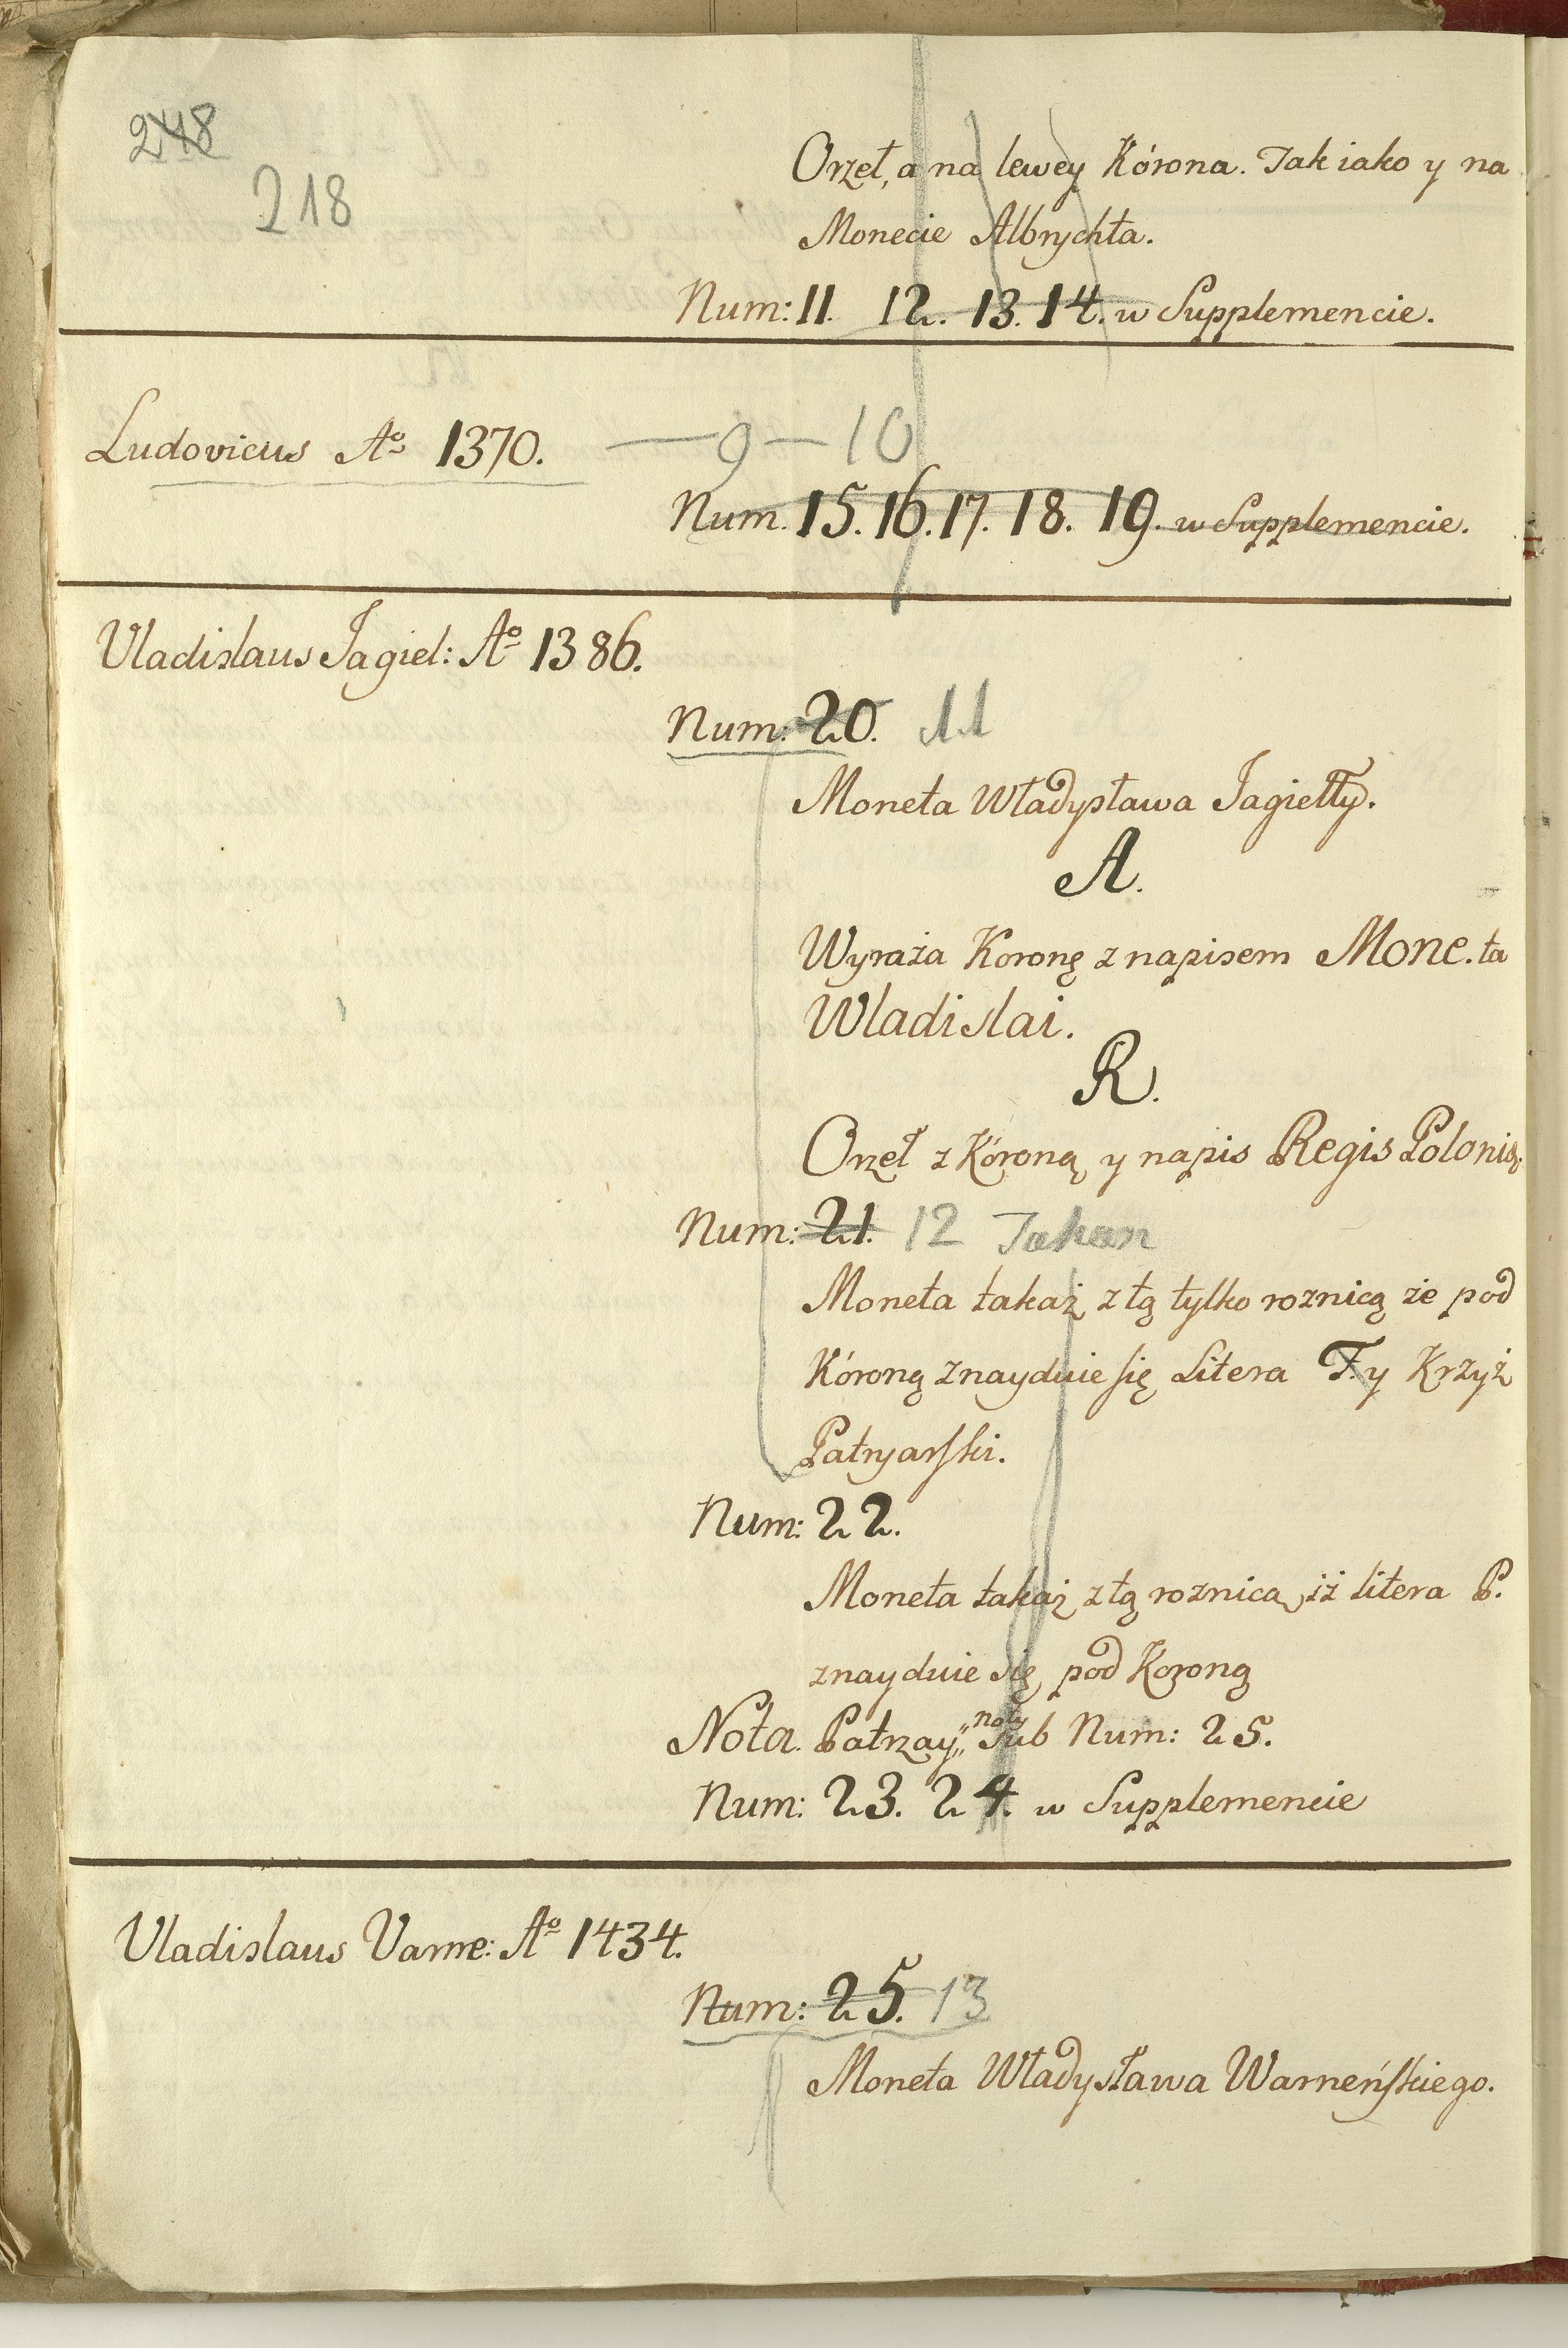 248
218
Orzeł, a na lewey Kórona. Tak iako y na
Monecie Albrychta.
Num: 11. 12. 13. 14. w Supplemencie.
Ludovicus Aº 1370. — 9 — 10
Num. 15. 16. 17. 18. 19. w Supplemencie.
Vladislaus Jagiel: Aº 1386.
Num: 20. 11
Moneta Władysława Jagiełły.
A.
Wyraża Koronę z napisem Mone. ta
Wladislai.
R.
Orzeł z Kóroną y napis Regis Polonię.
Num: 21. 12
Moneta takaż z tą tylko roznicą że pod
Kóroną znayduie się Litera F. y Krzyż
Patryarski.
Num: 22.
Moneta takaż z tą roznicą, iż litera P.
znayduie się pod Koroną
Nota. Patrzay „noty„ sub Num: 25.
Num: 23. 24. w Supplemencie
Vladislaus Varne: Aº 1434.
Num: 25. 13
Moneta Władysława Warneńskiego.